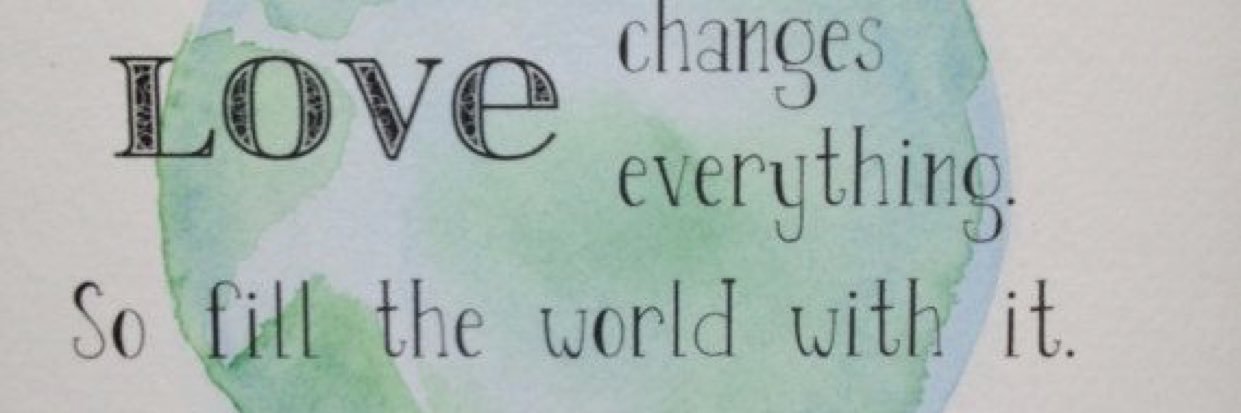 Love changes
everything.
So fill the world with it.